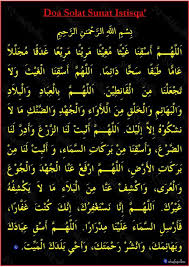 Doa Solat Sunat Istisqa'
بِسْمِ اللهِ الرَّحْمٰنِ الرَّحِيْمِ
اَللّٰهُمَّ اَسْقِنَا غَيْثًا مُغِيْثًا هَنِيْئًا مَرِيْئًا مَرِيْعًا غَدَقًا مُجَلَّلًا
عَامًّا طَبَقًا سَحًّا دَائِمًا. اَللّٰهُمَّ اَسْقِنَا الْغَيْثَ وَلَا
تَجْعَلْنَا مِنَ الْقَانِطِيْنَ. اَللّٰهُمَّ اِنَّ بِالْعِبَادِ وَالْبِلَادِ
وَالْبَهَائِمِ وَالْخَلْقِ مِنَ اللَّأْوَاءِ وَالْجَهْدِ وَالضَّنْكِ مَا لَا
نَشْكُوْهُ إِلَّا إِلَيْكَ. اَللّٰهُمَّ أَنْبِتْ لَنَا الزَّرْعَ وَأَدِرَّ لَنَا
الضَّرْعَ وَاسْقِنَا مِنْ بَرَكَاتِ السَّمَاءِ، وَأَنْبِتْ لَنَا مِنْ
بَرَكَاتِ الْأَرْضِ. اَللّٰهُمَّ ارْفَعْ عَنَّا الْجَهْدَ وَالْجُوْعَ
وَالْعُرْيَ، وَاكْشِفْ عَنَّا مِنَ الْبَلَاءِ مَا لَا يَكْشِفُهُ
غَيْرُكَ. اَللّٰهُمَّ إِنَّا نَسْتَغْفِرُكَ، إِنَّكَ كُنْتَ غَفَّارًا،
فَأَرْسِلِ السَّمَاءَ عَلَيْنَا مِدْرَارًا. اَللّٰهُمَّ اسْقِ عِبَادَكَ
وَبَهَائِمَكَ، وَانْشُرْ رَحْمَتَكَ، وَأَحْيِ بَلَدَكَ الْمَيِّتَ.